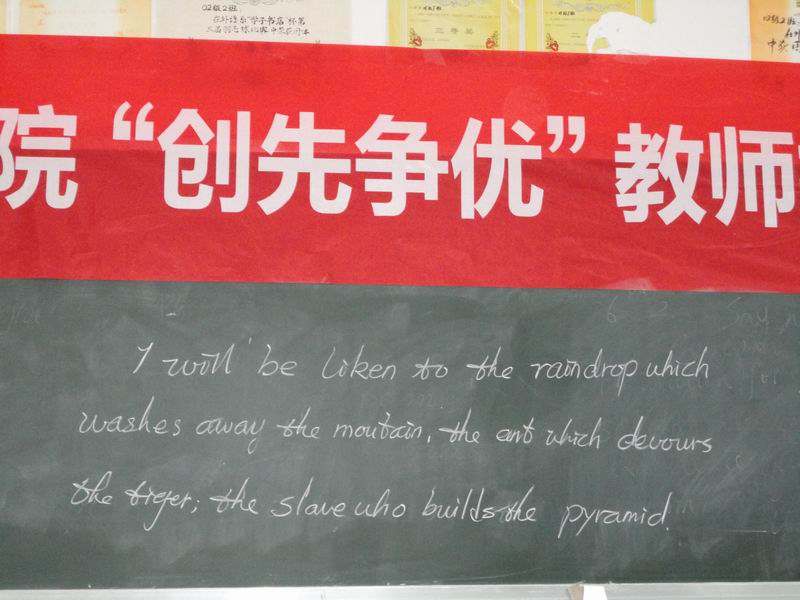 02级2班:
三等奖
二
院“创先争优”教师
I will be liken to the raindrop which
washes away the moutain, the ant which devours
the tiger; the slave who builds the pyramid.